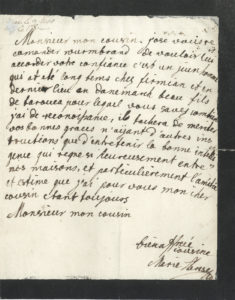 Monsieur mon cousin, jose vous re
comander wurmbrand de vouloir lui
accorder votre confiance c'est un juin
qui at été long tems chez firmian et en
dernier lieu an danemarck beau fils
de tarouca pour lequel vous savez combien
j'ai de reconoisance, il tachera de meriter
vos bonnes graces n'ajant d'autres ins
tructions que d'entretenir la bonne intelli
gence qui regne si heureusement entre
nos maisons, et particulierement l'amitié
et estime que j'ai pour vous mon cher
cousin etant toujours
Monsieur mon cousin
bien affnée
cousine
Marie Therese